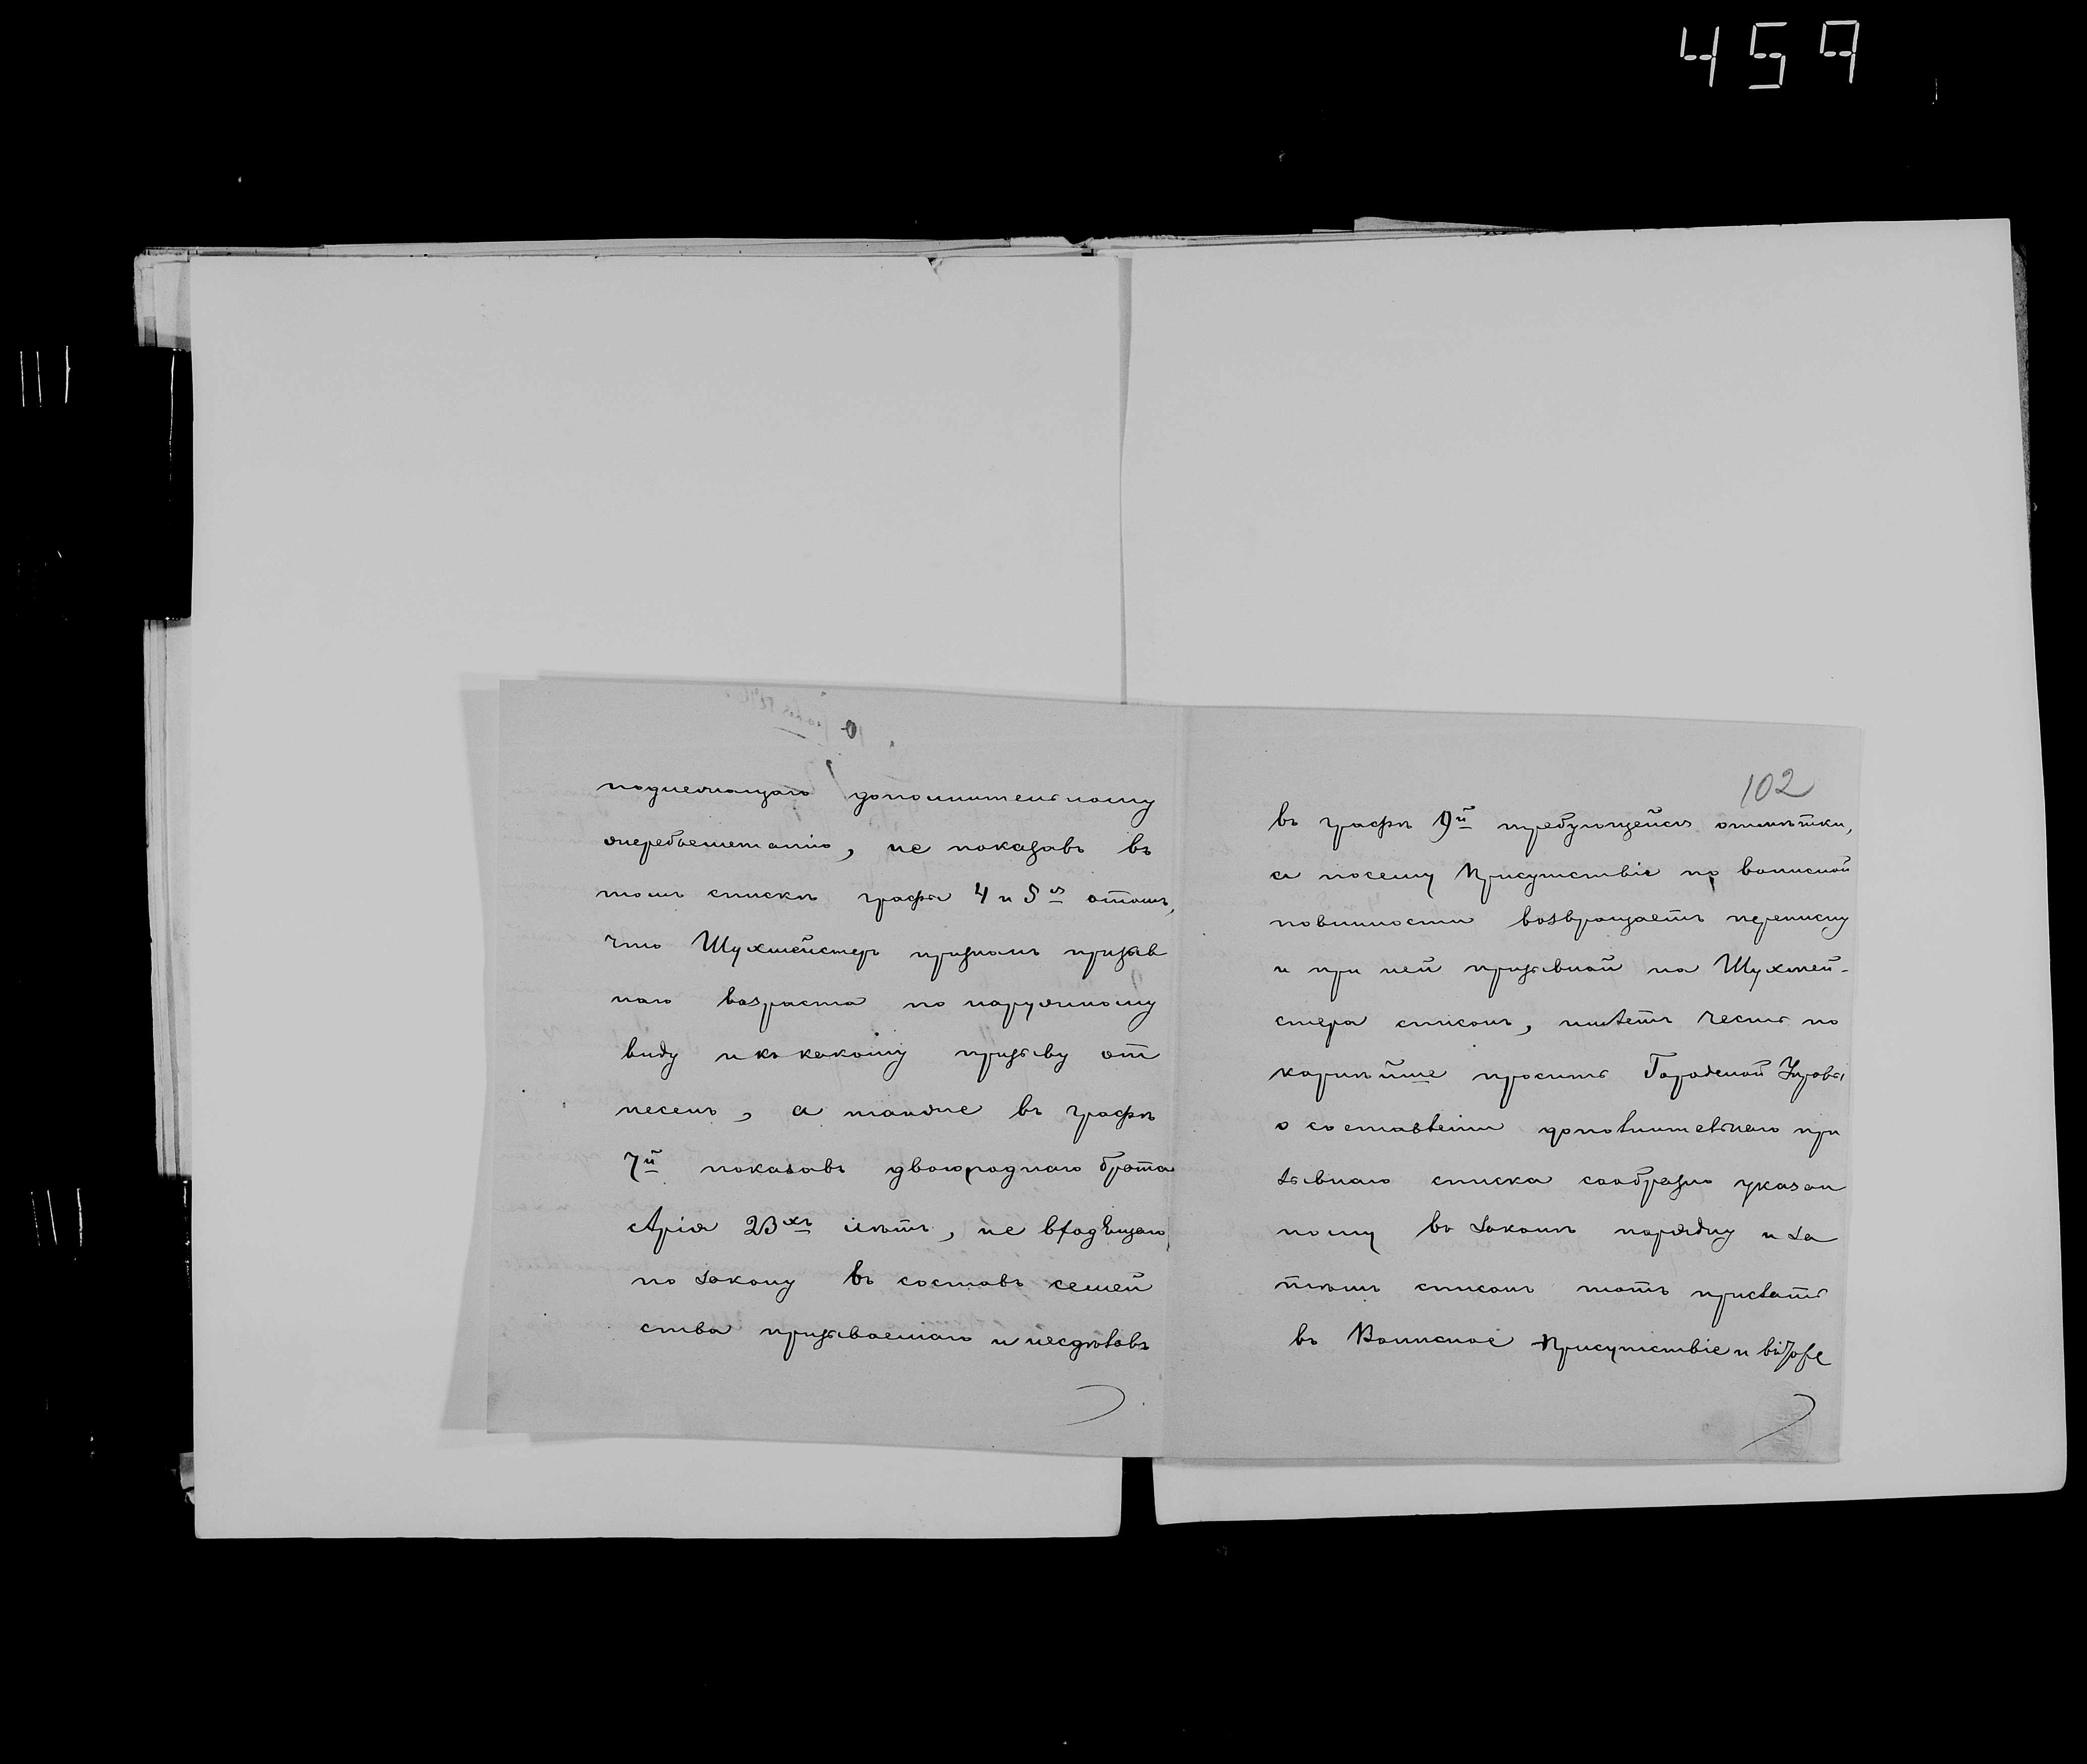 459
подлежащаго дополнительному
очереднометанію, не показавъ въ
томъ спискѣ графы 4 и 5ая отомъ,
что Шухмейстеръ признанъ призыв
наго возраста по наружному
виду и къ какому призыву от
несенъ, а также въ графѣ
7й показавъ двоюроднаго брата
Арія 23хъ лѣтъ, не входящаго
по закону въ составъ семей
ства призываемаго и несдѣлавъ
102
въ графѣ 9й требующейся отмѣтки,
а посему Присутствіе по воинской
повинности возвращаетъ переписку
и при ней призывной на Шухмей-
стера списокъ, имѣетъ честь по
корнѣйше просить Городской Управы
о составленіи дополнительнаго при
зывнаго списка сообразно указан
ному въ законѣ порядку и за
тѣмъ списокъ тотъ прислать
въ Воинское Присутствіе и